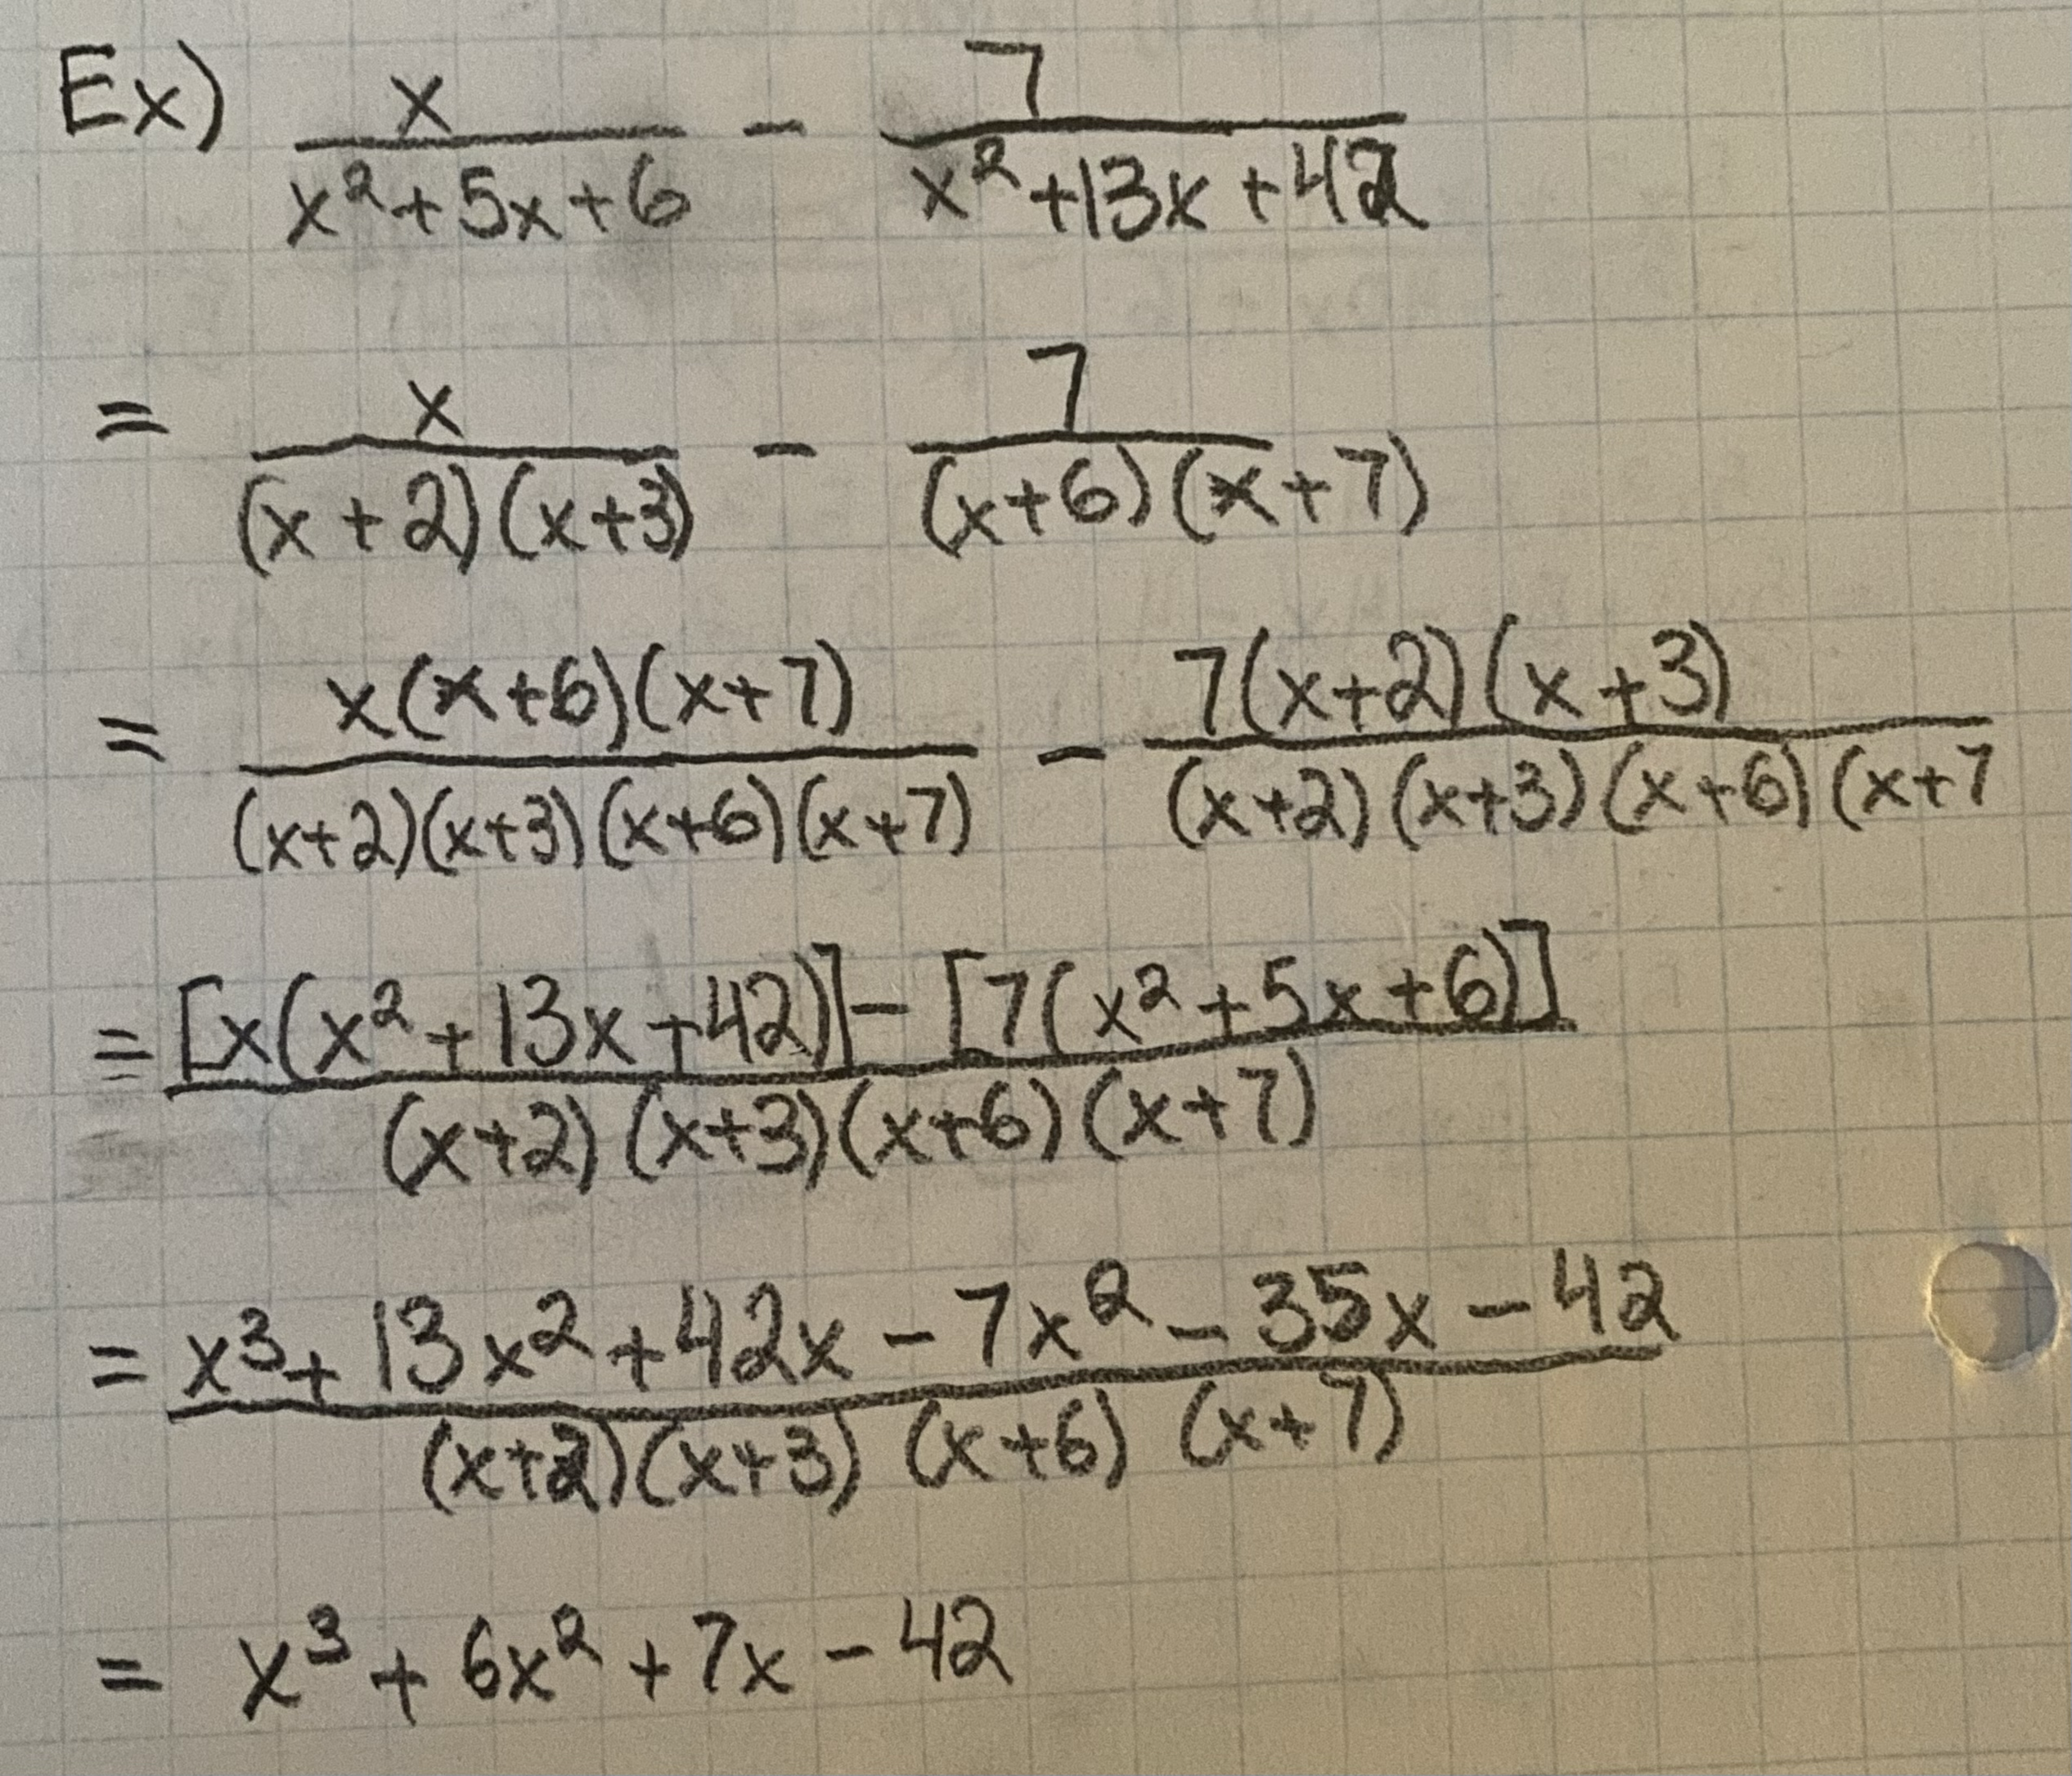 Ex) x/(x²+5x+6) - 7/(x²+13x+42)
= x/((x+2)(x+3)) - 7/((x+6)(x+7))
= x(x+6)(x+7)/((x+2)(x+3)(x+6)(x+7)) - 7(x+2)(x+3)/((x+2)(x+3)(x+6)(x+7
= [x(x²+13x+42)]-[7(x²+5x+6)]/((x+2)(x+3)(x+6)(x+7))
= x³+13x²+42x-7x²-35x-42/((x+2)(x+3)(x+6)(x+7))
= x³+6x²+7x-42